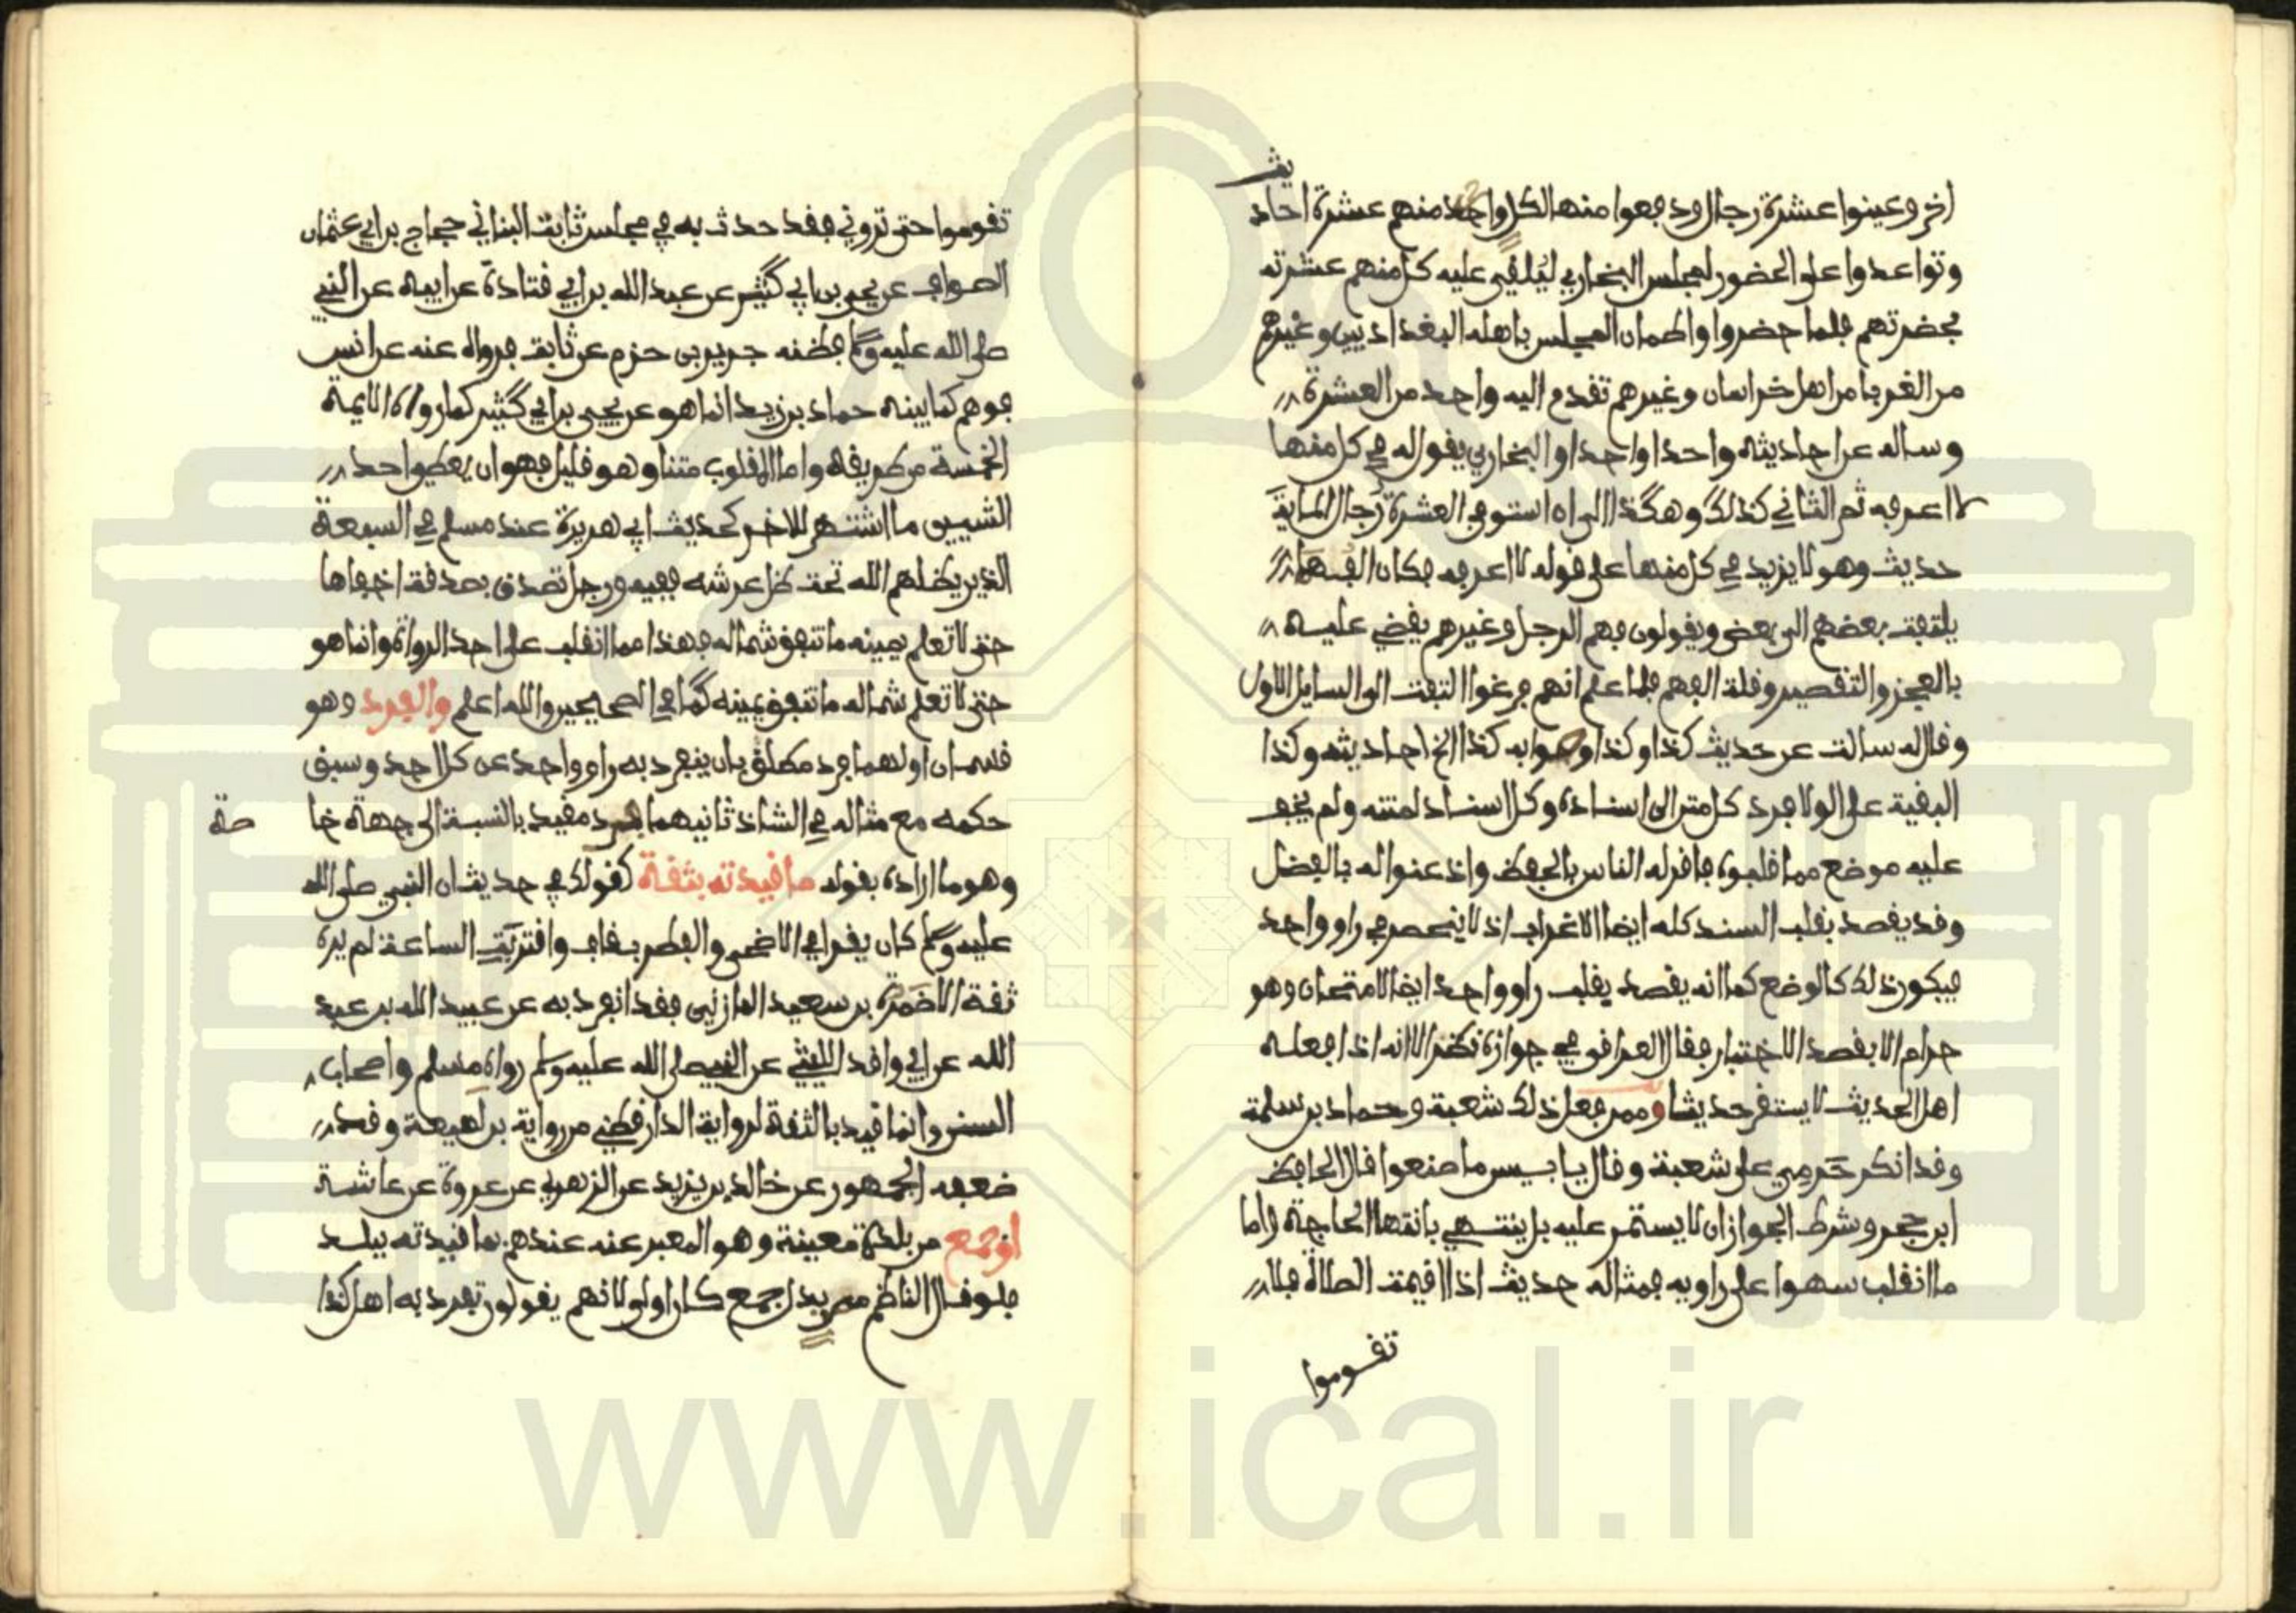 يث
اخر وعينوا عشرة رجال ودفعوا منها لكل واحد منهم عشرة احاد
وتواعدوا على الحضور لمجلس البخاري ليلقي عليه كل منهم عشرته
بحضرتهم فلما حضروا واطمان المجلس باهله البغداديين وغيرهم
من الغربا من اهل خراسان وغيرهم تقدم اليه واحد من العشرة
وساله عن احاديثه واحدا واحدا والبخاري يقول له في كل منها
لا اعرفه ثم الثاني كذلك وهكذا الى ان استوفى العشرة رجال الماية
حديث وهو لا يزيد في كل منها على قوله لا اعرفه فكان الفهما
يلتفت بعضهم الى بعض ويقولون فهم الرجل وغيرهم يقضي عليه
بالعجز والتقصير وقلة الفهم فلما علم انهم فرغوا التفت الى السايل الاول
وقال له سالت عن حديث كذا وكذا وصوابه كذا الخ احاديثه وكذا
البقية على الولا فرد كل متن الى اسناده وكل اسناد لمتنه ولم يخف
عليه موضع مما قلبوه فاقر له الناس بالحفظ واذعنوا له بالفضل
وقد يقصد بقلب السند كله ايضا الاغراب اذ لا ينحصر في راو واحد
فيكون ذلك كالوضع كما انه يقصد بقلب راو واحد ايضا الامتحان وهو
حرام الا بقصد الاختبار فقال العراقي في جوازه نظر الا انه اذا فعله
اهل الحديث لا يستقر حديثا وممن فعل ذلك شعبة وحماد بن سلمة
وقد انكر حرمي على شعبة وقال يا بيس ما صنعوا قال الحافظ
ابن حجر وشرط الجواز ان لا يستمر عليه بل ينتهي بانتها الحاجة واما
ما انقلب سهوا على راويه فمثاله حديث اذا اقيمت الصلاة فلا
تقوموا
تقوموا حتى تروني فقد حدث به في مجلس ثابت البناني حجاج بن ابي عثمان
الصواف عن يحيى بن ابي كثير عن عبد الله بن ابي قتادة عن ابيه عن النبي
صلى الله عليه وسلم فظنه جرير بن حزم عن ثابت فرواه عنه عن انس
فوهم كما بينه حماد بن زيد انما هو عن يحيى بن ابي كثير كما رواه الايمة
الخمسة من طريقه واما المقلوب متنا وهو قليل فهو ان يعطي احد
الشييين ما اشتهر للاخر كحديث ابي هريرة عند مسلم في السبعة
الذين يظلهم الله تحت ظل عرشه ففيه ورجل تصدق بصدقة اخفاها
حتى لا تعلم يمينه ما تنفق شماله فهذا مما انقلب على احد الرواة وانما هو
حتى لا تعلم شماله ما تنفق يمينه كما في الصحيحين والله اعلم والفرد وهو
قسمان اولهما فرد مطلق بان ينفرد به راو واحد عن كل احد وسبق
حكمه مع مثاله في الشاذ ثانيهما فرد مقيد بالنسبة الى جهة خا
صة
وهو ما اراده بقوله ما قيدته بثقة كقولك في حديث ان النبي صلى الله
عليه وسلم كان يقرا في الاضحى والفطر بقاف واقتربت الساعة لم يره
ثقة الا ضمرة بن سعيد المازني فقد انفرد به عن عبيد الله بن عبد
الله عن ابي واقد الليثي عن النبي صلى الله عليه وسلم رواه مسلم واصحاب
السنن وانما قيد بالثقة لرواية الدارقطني من رواية بن لهيعة وقد
ضعفه الجمهور عن خالد بن يزيد عن الزهري عن عروة عن عاشة
او جمع من بلدة معينة وهو المعبر عنه عندهم بما قيدته ببلد
فلو قال الناظم مصر بدل جمع كان اولى لانهم يقولون تفرد به اهل كذا
www.ical.ir